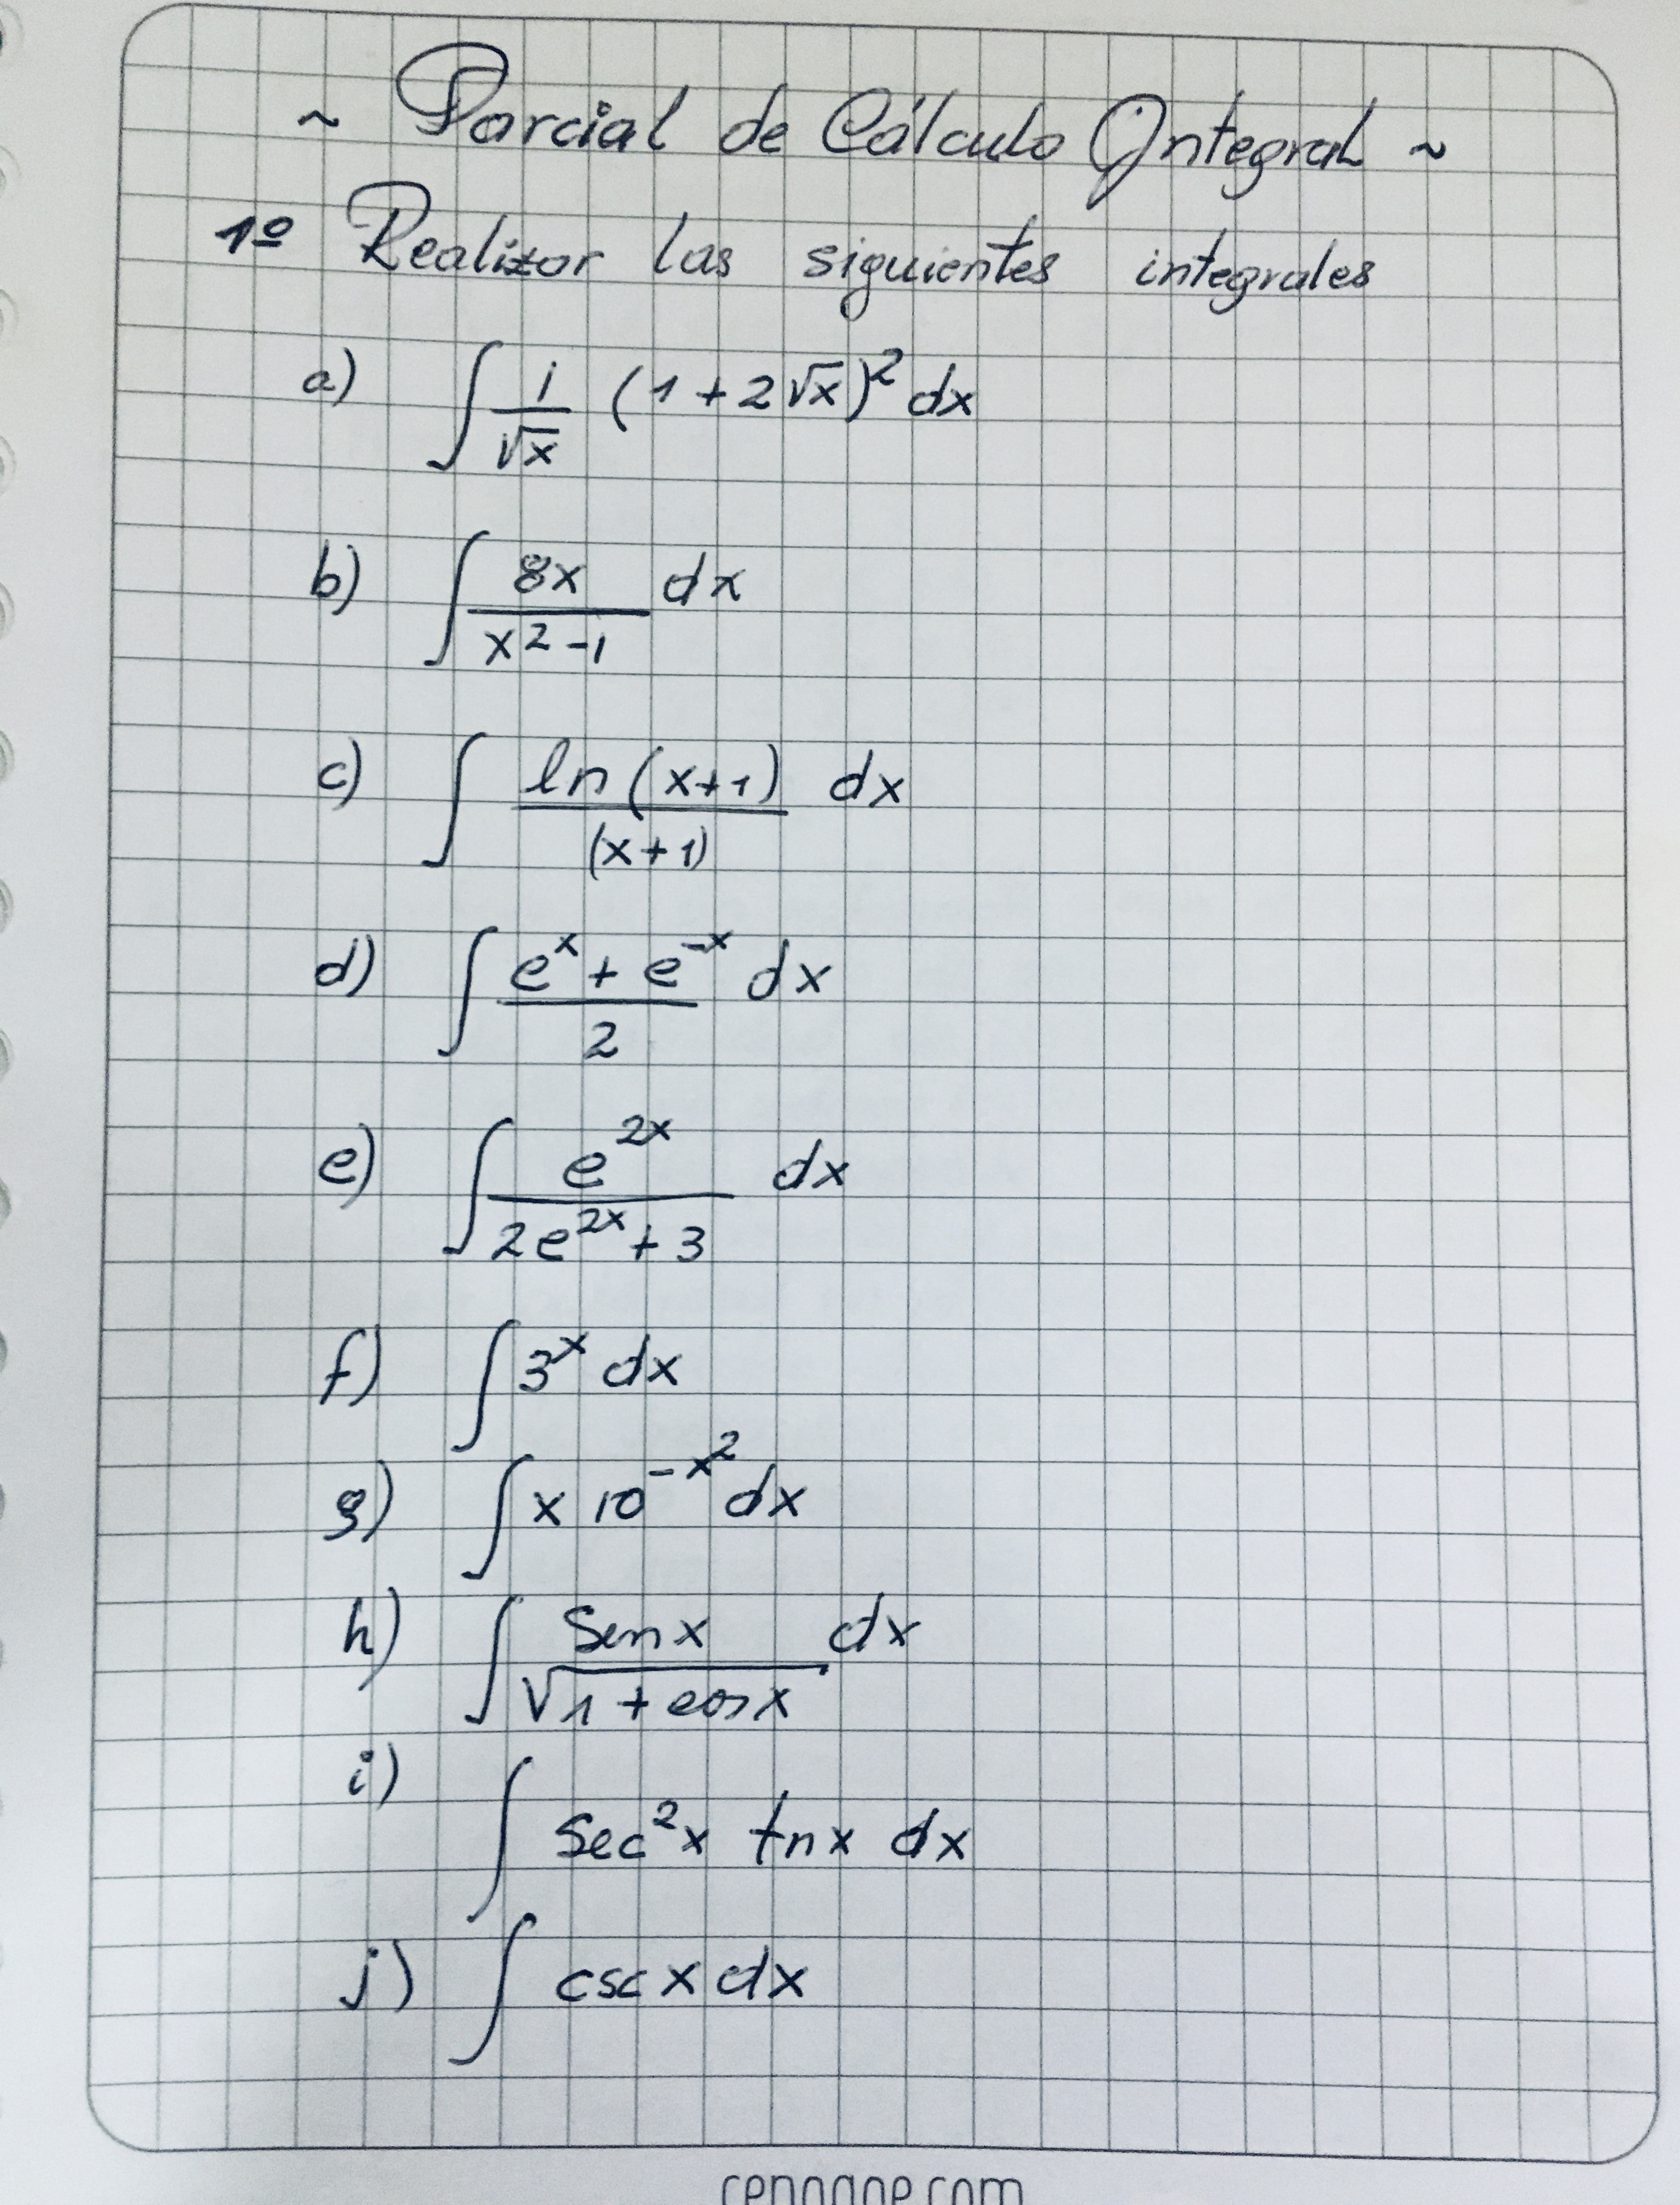 ~ Parcial de Cálculo Integral ~
1º Realizar las siguientes integrales
a) ∫ 1/√x (1 + 2√x)² dx
b) ∫ 8x/(x² - 1) dx
c) ∫ ln (x+1)/(x+1) dx
d) ∫ (eˣ + e⁻ˣ)/2 dx
e) ∫ e²ˣ/(2e²ˣ + 3) dx
f) ∫ 3ˣ dx
g) ∫ x 10^(-x²) dx
h) ∫ Sen x/√(1 + cos x) dx
i) ∫ Sec² x tn x dx
j) ∫ csc x dx
cengage.com